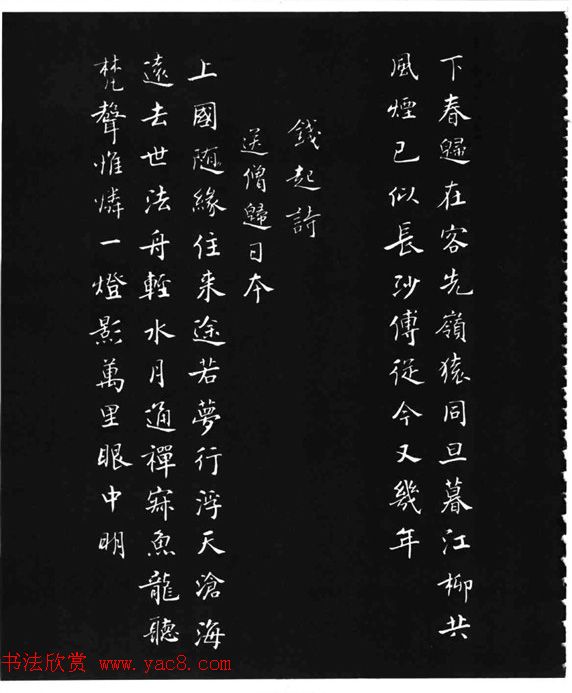 下春歸在客先嶺猿同旦暮江柳共
風煙已似長沙傅從今又幾年
錢起詩
送僧歸日本
上國随緣住来途若夢行浮天滄海
遠去世法舟輕水月通禪寂魚龍聽
梵聲惟憐一燈影萬里眼中明
书法欣赏 www.yac8.com